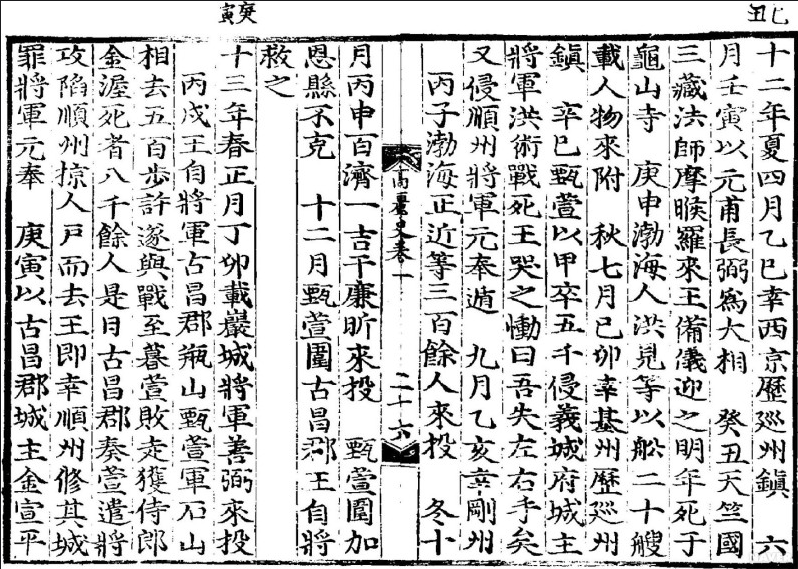 己丑
十二年夏四月乙巳幸西京歷廵州鎮　六
月壬寅以元甫長弼爲大相　癸丑天竺國
三藏法師摩睺羅來王備儀迎之明年死于
龜山寺　庚申渤海人洪見等以船二十艘
載人物來附　秋七月己卯幸基州歷廵州
鎮　辛巳甄萱以甲卒五千侵義城府城主
將軍洪術戰死王哭之慟曰吾失左右手矣
又侵順州將軍元奉遁　九月乙亥幸剛州
丙子渤海正近等三百餘人來投　冬十
高麗史卷一　二十六
月丙申百濟一吉干廉昕來投　甄萱圍加
恩縣不克　十二月甄萱圍古昌郡王自將
救之
庚寅
十三年春正月丁卯載巖城將軍善弼來投
丙戌王自將軍古昌郡瓶山甄萱軍石山
相去五百步許遂與戰至暮萱敗走獲侍郎
金渥死者八千餘人是日古昌郡奏萱遣將
攻陷順州掠人戶而去王即幸順州修其城
罪將軍元奉　庚寅以古昌郡城主金宣平